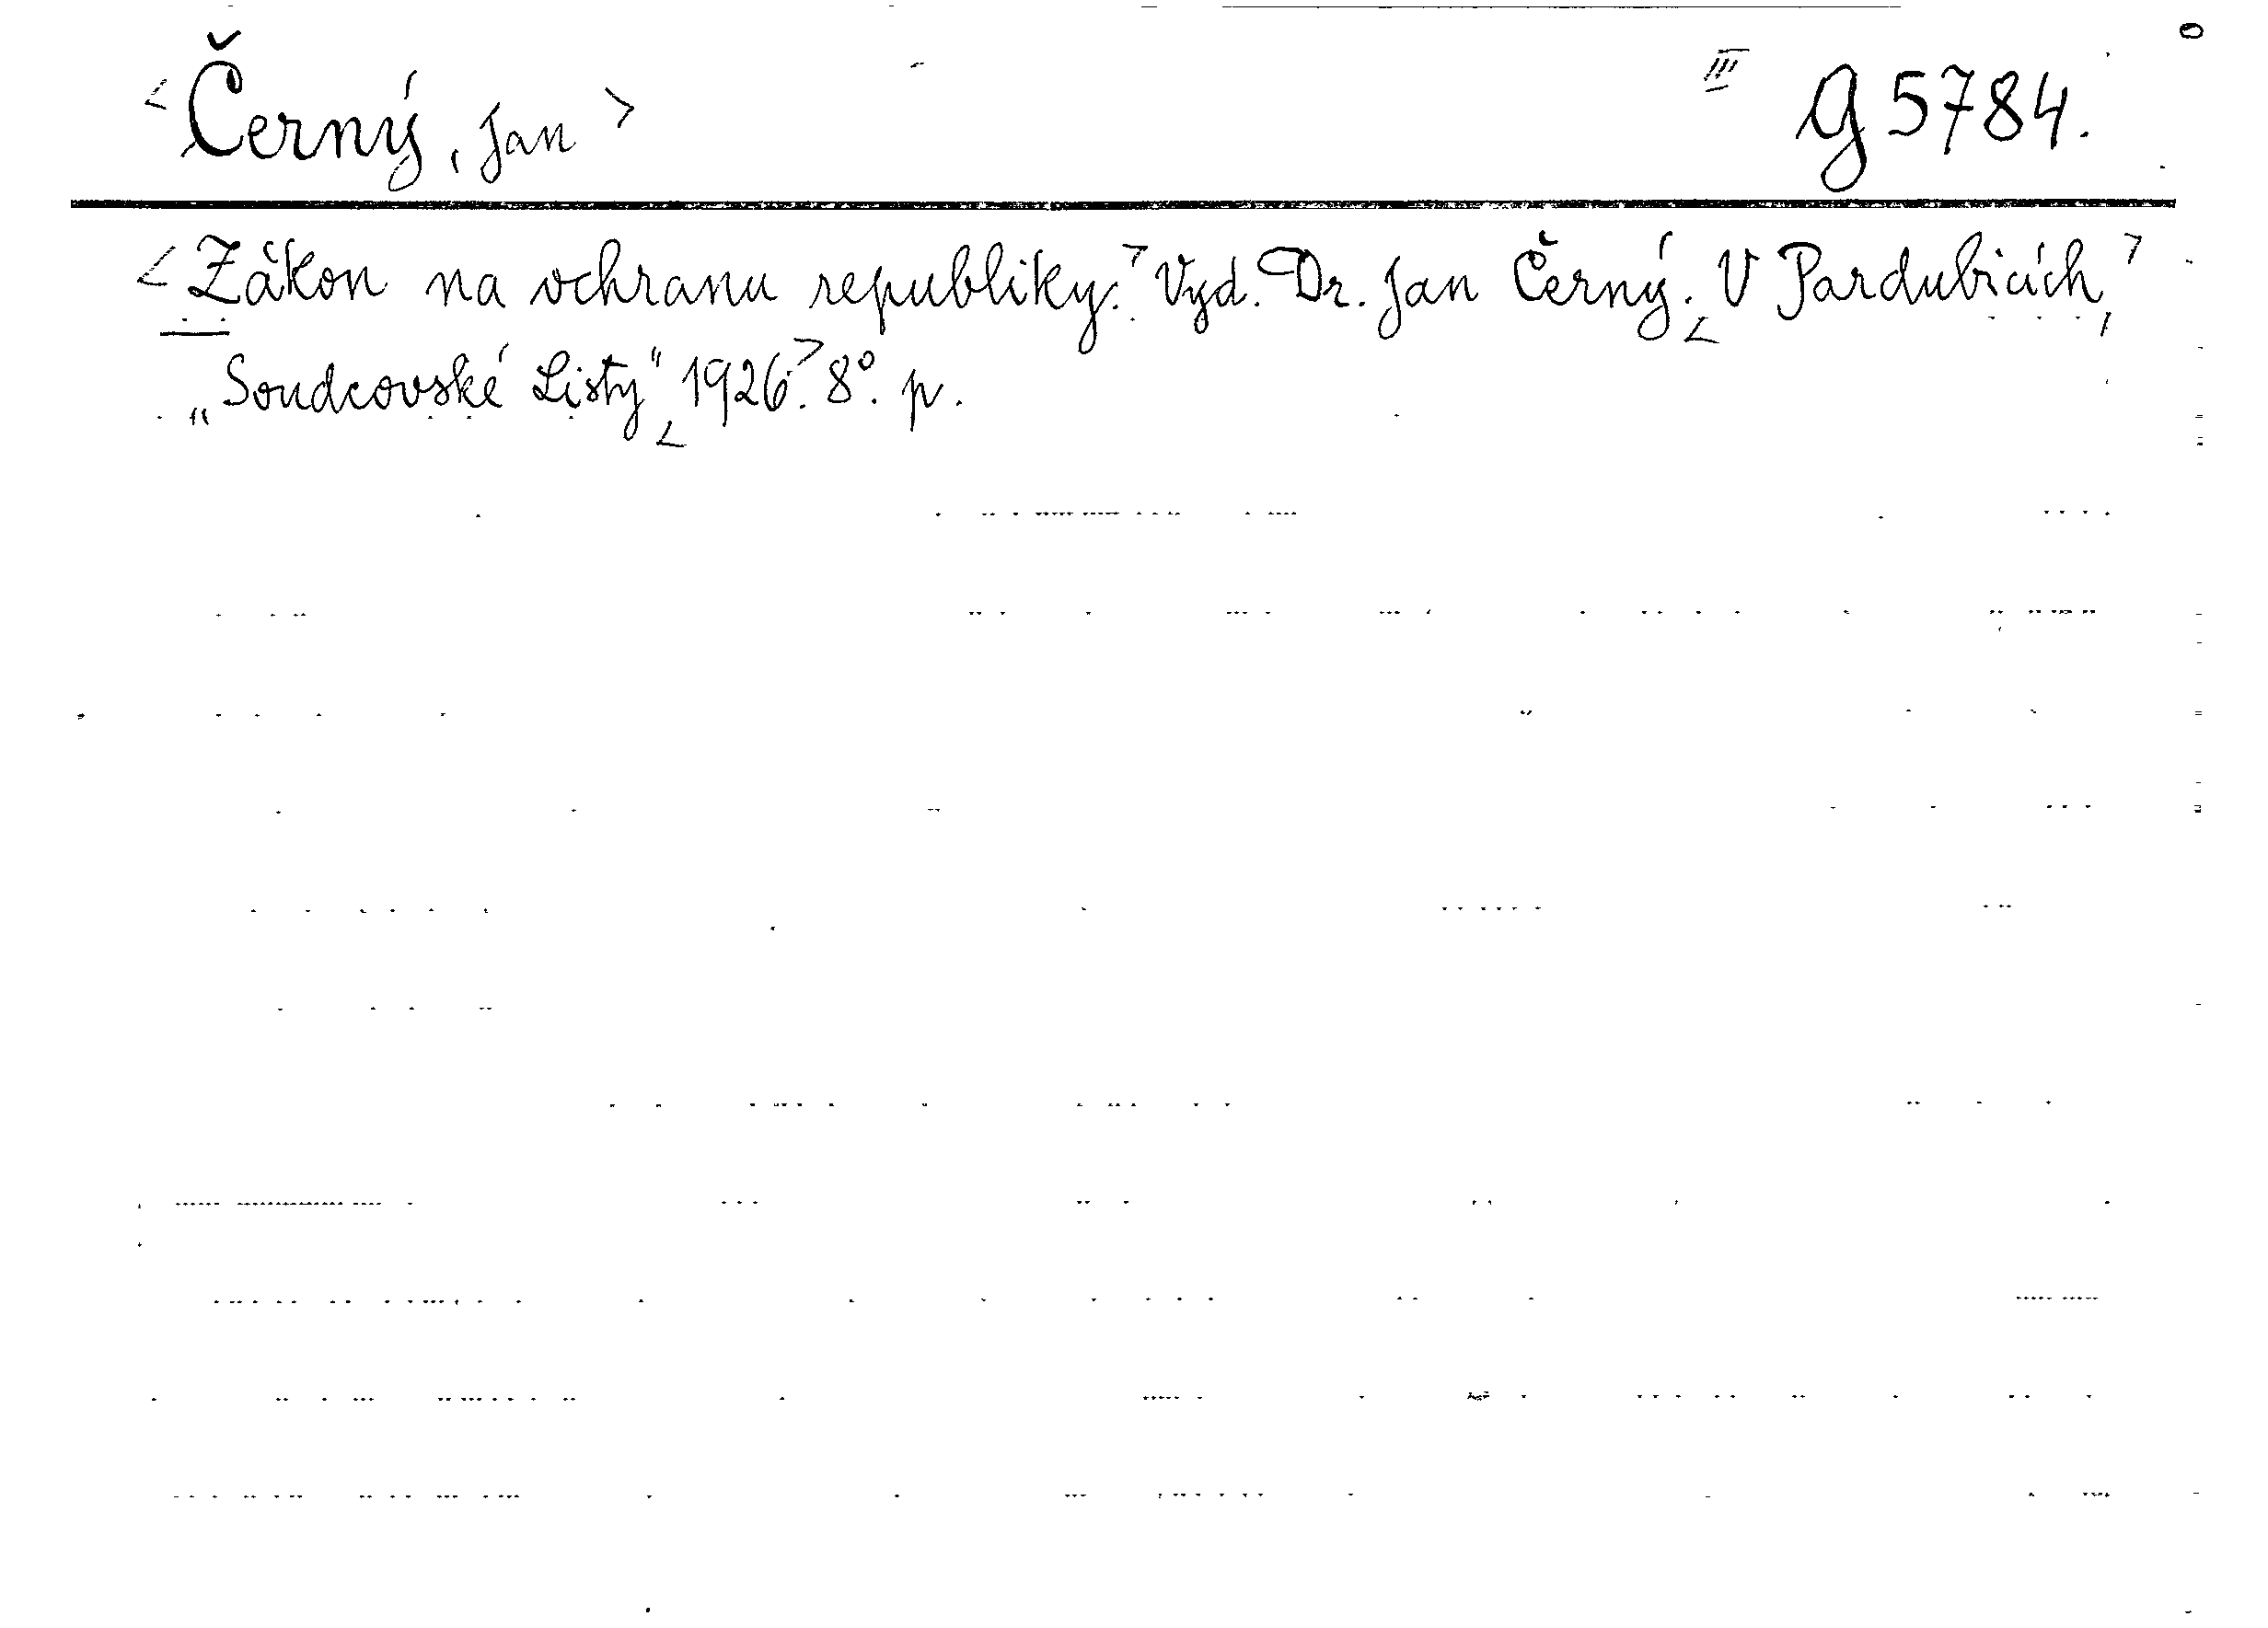 <Černý, Jan> III G 5784.
<Zákon na ochranu republiky.> Vyd. Dr. Jan Černý. <V Pardubicích,>
„Soudcovské Listy“ <1926.> 8°. p.